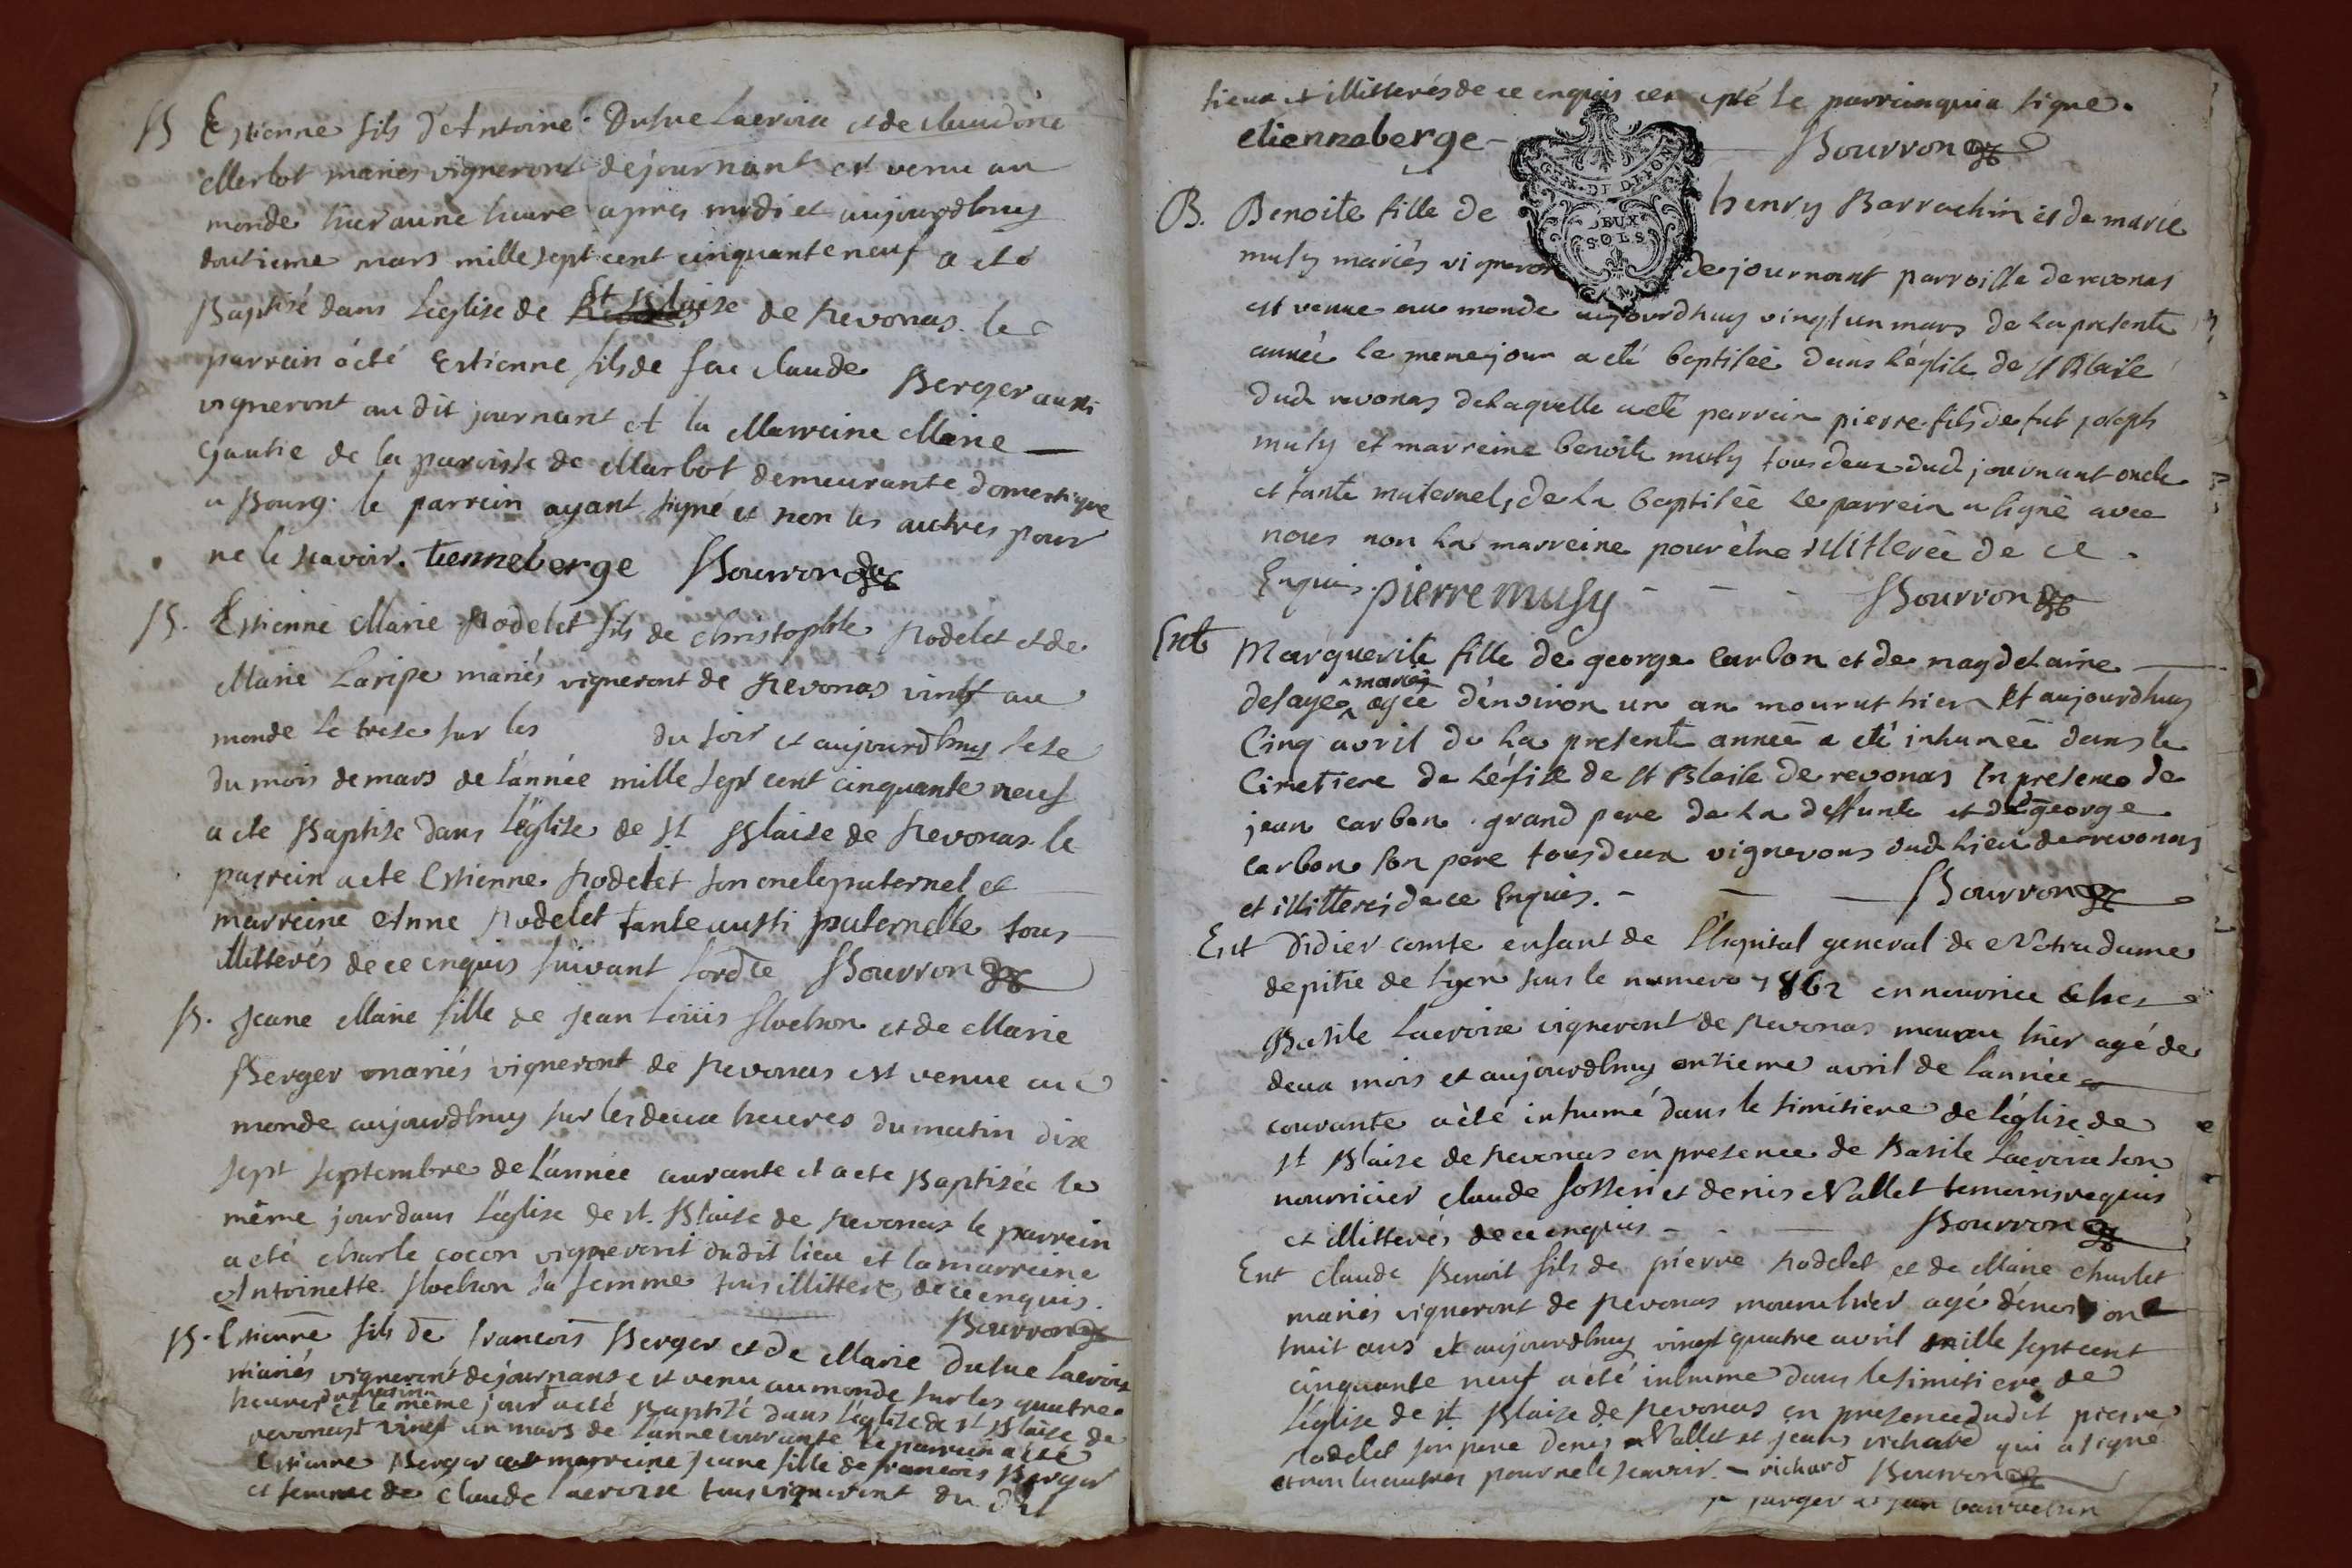 B Estienne fils d'Antoine Dufue Lacroix et de claudine
Merlot mariés vigneront de journant est venu au
monde hier a une heure apres midi et aujourdhuy
douzieme mars mille sept cent cinquante neuf a eté
Baptisé dans Leglise de St Blaise de Revonas le
parrain a eté Estienne fils de feu claude Berger aussi
vigneront au dit journant et la Marraine Marie
Gautie de la paroisse de Marbot demeurante domestique
a Bourg. le parrein ayant signé et non les autres pour
ne le scavoir. tienneberge Bourron
B. Estienne Marie Rodelet fils de christophle Rodelet et de
Marie Laripe mariés vigneront de Revonas vint au
monde le treze sur les du soir et aujourdhuy seze
du mois de mars de l'année mille sept cent cinquante neuf
a ete Baptise dans l'église de St Blaise de Revonas le
parrein a ete Estienne Rodelet son oncle paternel et
marreine Anne Rodelet tante aussi paternelle tous
illitterés de ce enquis suivant lordce Bourron
B. Jeane Marie fille de Jean Loüis et de Marie
Berger mariés vigneront de Revonas est venue au
monde aujourdhuy sur les deux heures du matin dix
sept septembre de l'année courante et a ete Baptisée le
même jour dans l'église de St. Blaise de Revonas le parrein
a eté charle cocon vigneront du dit lieu et la marreine
Antoinette sa femme tous illitterés de ce enquis.
Bourron
B. Estienne fils de francois Berger et de Marie Dufue lacroix
mariés vigneront de journans est venu au monde sur les quatre
heures du matin et le même jour a eté Baptisé dans l'église de St Blaise de
revonas vingt un mars de lanne courrante le parrein a eté
Estienne Berger et marreine Jeane fille de francois Berger
et femme de Claude lacroix tous vigneront du dit
lieux et illitterés de ce enquis excepté le parrein qui a signe.
etienneberge - Bourron
GEN. DE DIJON
DEUX
SOLS
B. Benoite fille de henry Barrachin et de marie
musy mariés vigneron de journant parroisse de revonas
est venue au monde aujourdhuy vingt un mars de la presente
année le meme jour a eté baptisée dans l'église de St Blaise
dud revonas de laquelle a eté parrein pierre fils de fut joseph
musy et marreine benoite musy tous deux dud journant oncle
et tante maternels de la baptisée le parrein a signé avec
nous non la marreine pour être illiterée de ce
Enquis pierre musy - - - Bourron
Ent Marguerite fille de george Carbon et de magdelaine
delaye mariés agée d'environ un an mourut hier et aujourdhuy
Cinq avril de la presente année a eté inhumée dans le
Cimetiere de de St Blaise de revonas In presence de
jean carbon grand pere de la deffunte et de george
carbon son pere tous deux vignerons dud lieu de revonas
et illitterés de ce Enquis. - Bourron
Ent Didier comte enfant de l'hopital general de Notre dame
de pitie de Lyon sous le numero 7862 en nourice chez
Basile Lacroix vigneront de Revonas mourut hier agé de
deux mois et aujourdhuy onzieme avril de l'année
courante a été inhumé dans le simitiere de l'église de
St Blaise de Revonas en presence de Basile Lacroix son
nourricier Claude et denis Vallet temoins requis
et illitterés de ce enquis - Bourron
Ent Claude Benoit fils de pierre Rodelet et de Marie Charlet
mariés vigneront de Revonas mourut hier agé d'environ
huit ans et aujourdhuy vingt quatre avril mille sept cent
cinquante neuf a été inhumé dans le simitiere de
l'église de St Blaise de Revonas en presence dudit pierre
Rodelet son pere Denis Vallet et jean richard qui a signe
et non les autres pour ne le scavoir. - richard Bourron